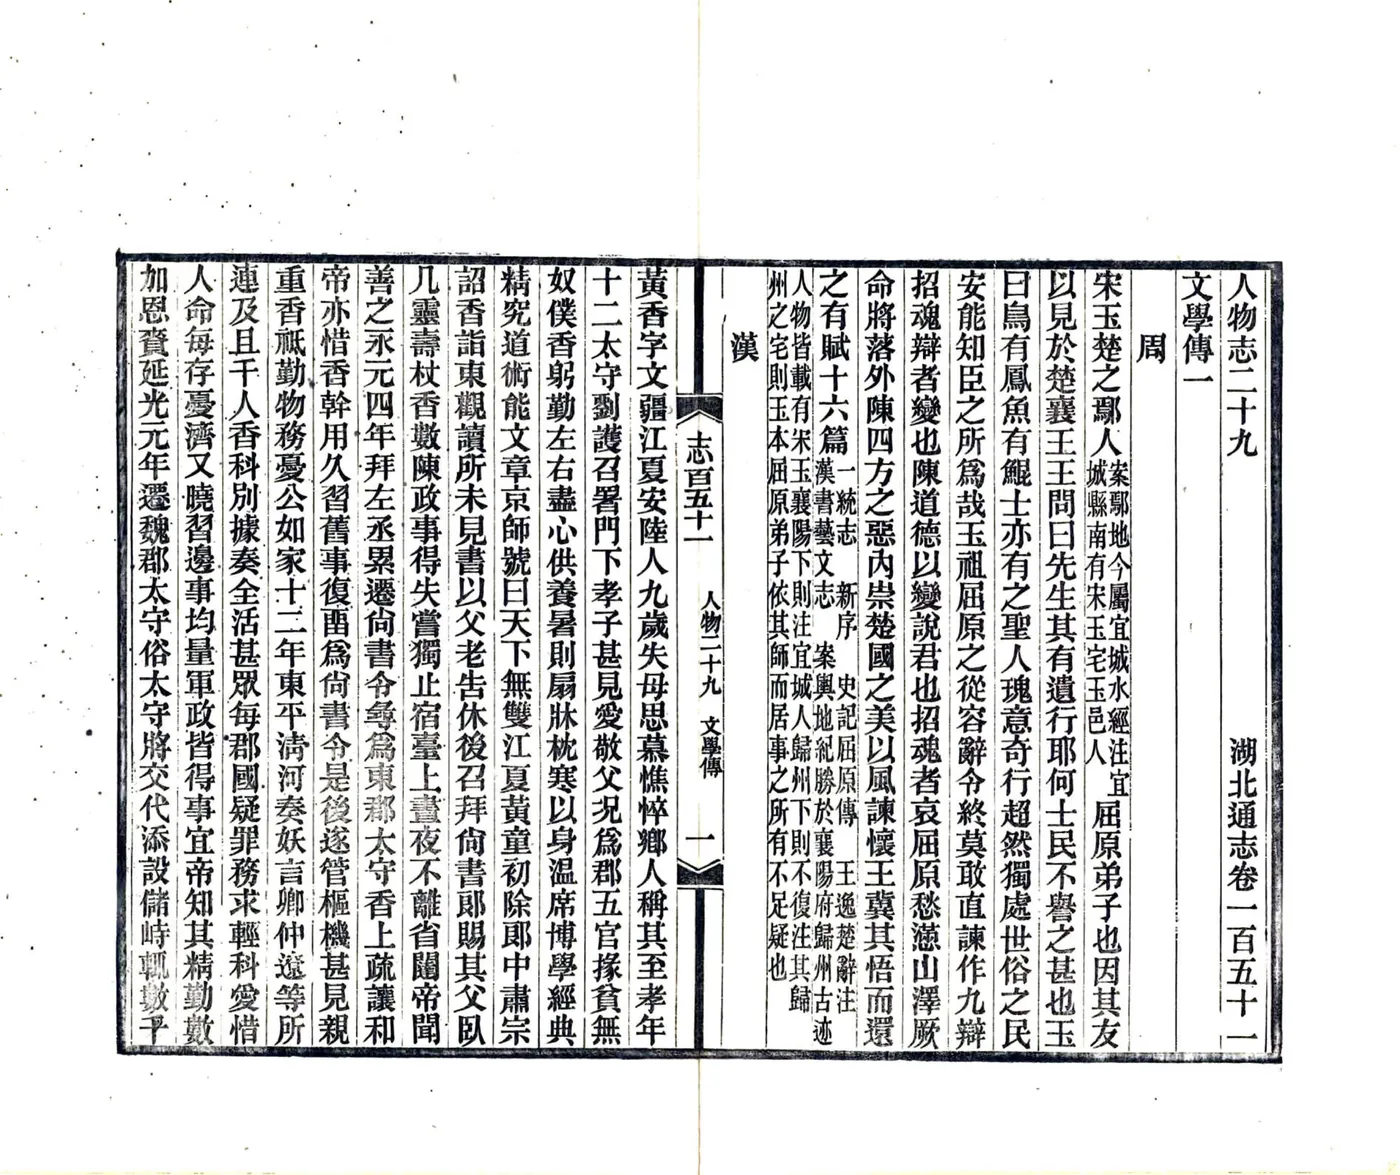 人物志二十九 湖北通志卷一百五十一
文學傳一
周
宋玉楚之鄢人案鄢地今屬宜城水經注宜城縣南有宋玉宅玉邑人屈原弟子也因其友
以見於楚襄王王問曰先生其有遺行耶何士民不譽之甚也玉
曰鳥有鳳魚有鯤士亦有之聖人瑰意奇行超然獨處世俗之民
安能知臣之所爲哉玉祖屈原之從容辭令終莫敢直諫作九辯
招魂辯者變也陳道德以變說君也招魂者哀屈原愁懣山澤厥
命將落外陳四方之惡內崇楚國之美以風諫懷王冀其悟而還
之有賦十六篇一統志 新序 史記屈原傳 王逸楚辭注漢書藝文志 案輿地紀勝於襄陽府歸州古迹
人物皆載有宋玉襄陽下則注宜城人歸州下則不復注其歸
州之宅則玉本屈原弟子依其師而居事之所有不足疑也
漢
志百五十一 人物二十九 文學傳 一
黃香字文疆江夏安陸人九歲失母思慕憔悴鄉人稱其至孝年
十二太守劉護召署門下孝子甚見愛敬父況爲郡五官掾貧無
奴僕香躬勤左右盡心供養暑則扇牀枕寒以身溫席博學經典
精究道術能文章京師號曰天下無雙江夏黃童初除郎中肅宗
詔香詣東觀讀所未見書以父老告休後召拜尙書郎賜其父臥
几靈壽杖香數陳政事得失嘗獨止宿臺上晝夜不離省闥帝聞
善之永元四年拜左丞累遷尙書令尋爲東郡太守香上疏讓和
帝亦惜香幹用久習舊事復畱爲尙書令是後遂管樞機甚見親
重香祗勤物務憂公如家十二年東平淸河奏妖言卿仲遼等所
連及且千人香科別據奏全活甚眾每郡國疑罪務求輕科愛惜
人命每存憂濟又曉習邊事均量軍政皆得事宜帝知其精勤數
加恩賚延光元年遷魏郡太守俗太守將交代添設儲峙輒數千